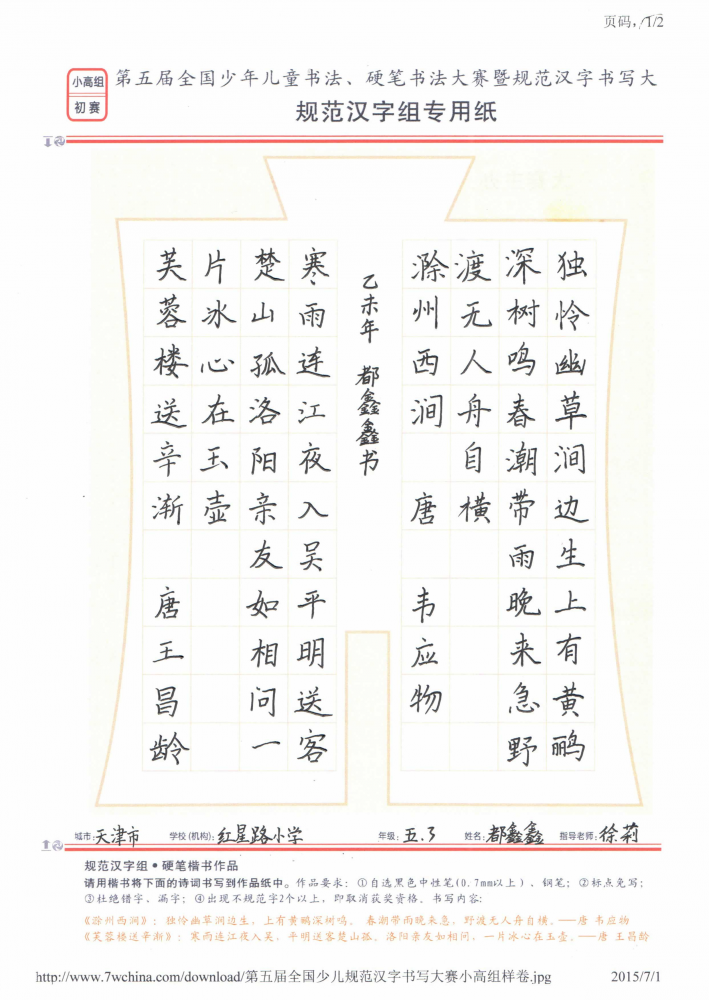 页码，1/2
小高组
初赛
第五届全国少年儿童书法、硬笔书法大赛暨规范汉字书写大
规范汉字组专用纸
独怜幽草涧边生上有黄鹂
深树鸣春潮带雨晚来急野
渡无人舟自横
滁州西涧 唐 韦应物
乙未年 都鑫鑫书
寒雨连江夜入吴平明送客
楚山孤洛阳亲友如相问一
片冰心在玉壶
芙蓉楼送辛渐 唐王昌龄
城市:天津市 学校(机构):红星路小学 年级:五.3 姓名:都鑫鑫 指导老师:徐莉
规范汉字组•硬笔楷书作品
请用楷书将下面的诗词书写到作品纸中。作品要求：①自选黑色中性笔(0.7mm以上)、钢笔；②标点免写；
③杜绝错字、漏字；④出现不规范字2个以上，即取消获奖资格。书写内容:
《滁州西涧》：独怜幽草涧边生，上有黄鹂深树鸣。春潮带雨晚来急，野渡无人舟自横。——唐 韦应物
《芙蓉楼送辛渐》：寒雨连江夜入吴，平明送客楚山孤。洛阳亲友如相问，一片冰心在玉壶。——唐 王昌龄
http://www.7wchina.com/download/第五届全国少儿规范汉字书写大赛小高组样卷.jpg 2015/7/1